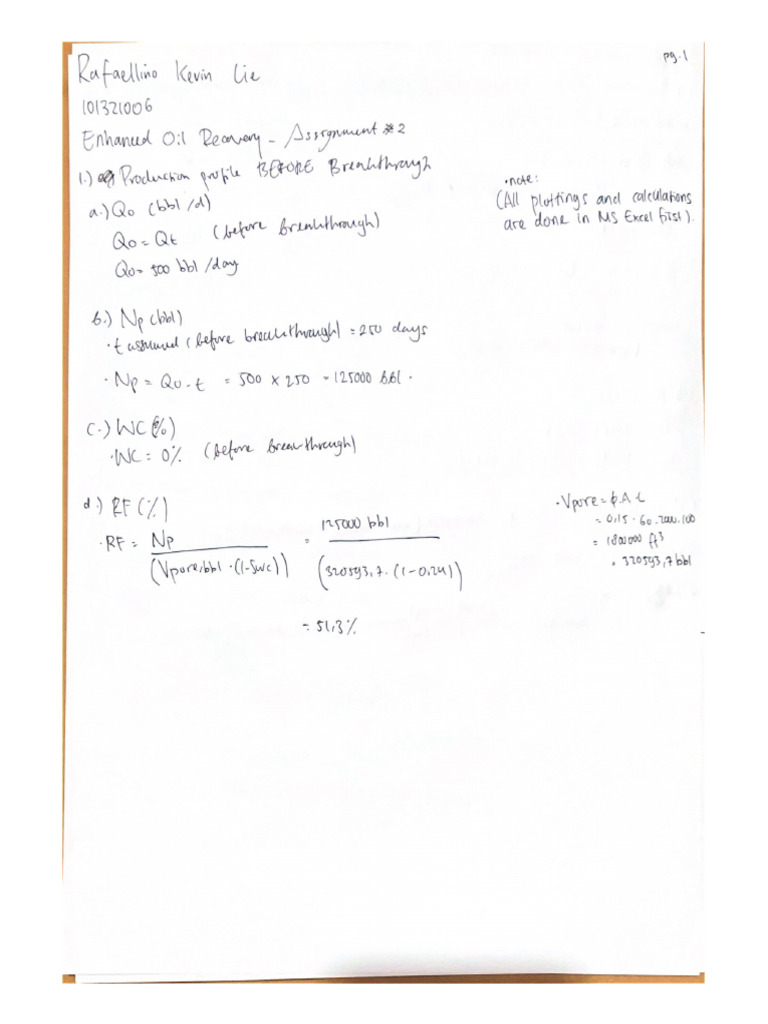 pg.1
Rafaellino Kevin Lie
101321006
Enhanced Oil Recovery - Assignment #2
1.) Production profile BEFORE Breakthrough
•note:
(All plottings and calculations
are done in MS Excel first).
a.) Qo (bbl/d)
Qo = Qt (before breakthrough)
Qo = 500 bbl/day
b.) Np (bbl)
• t assumed (before breakthrough) = 250 days
• Np = Qo . t = 500 x 250 = 125000 bbl .
c.) WC (%)
• WC = 0% (before breakthrough)
d.) RF (%)
• RF = Np / (Vpore,bbl . (1-Swc)) = 125000 bbl / (320593,7 . (1-0.24))
= 51,3%
• Vpore = ϕ.A.L
= 0,15 . 60.200.100
= 1800000 ft³
= 320593,7 bbl